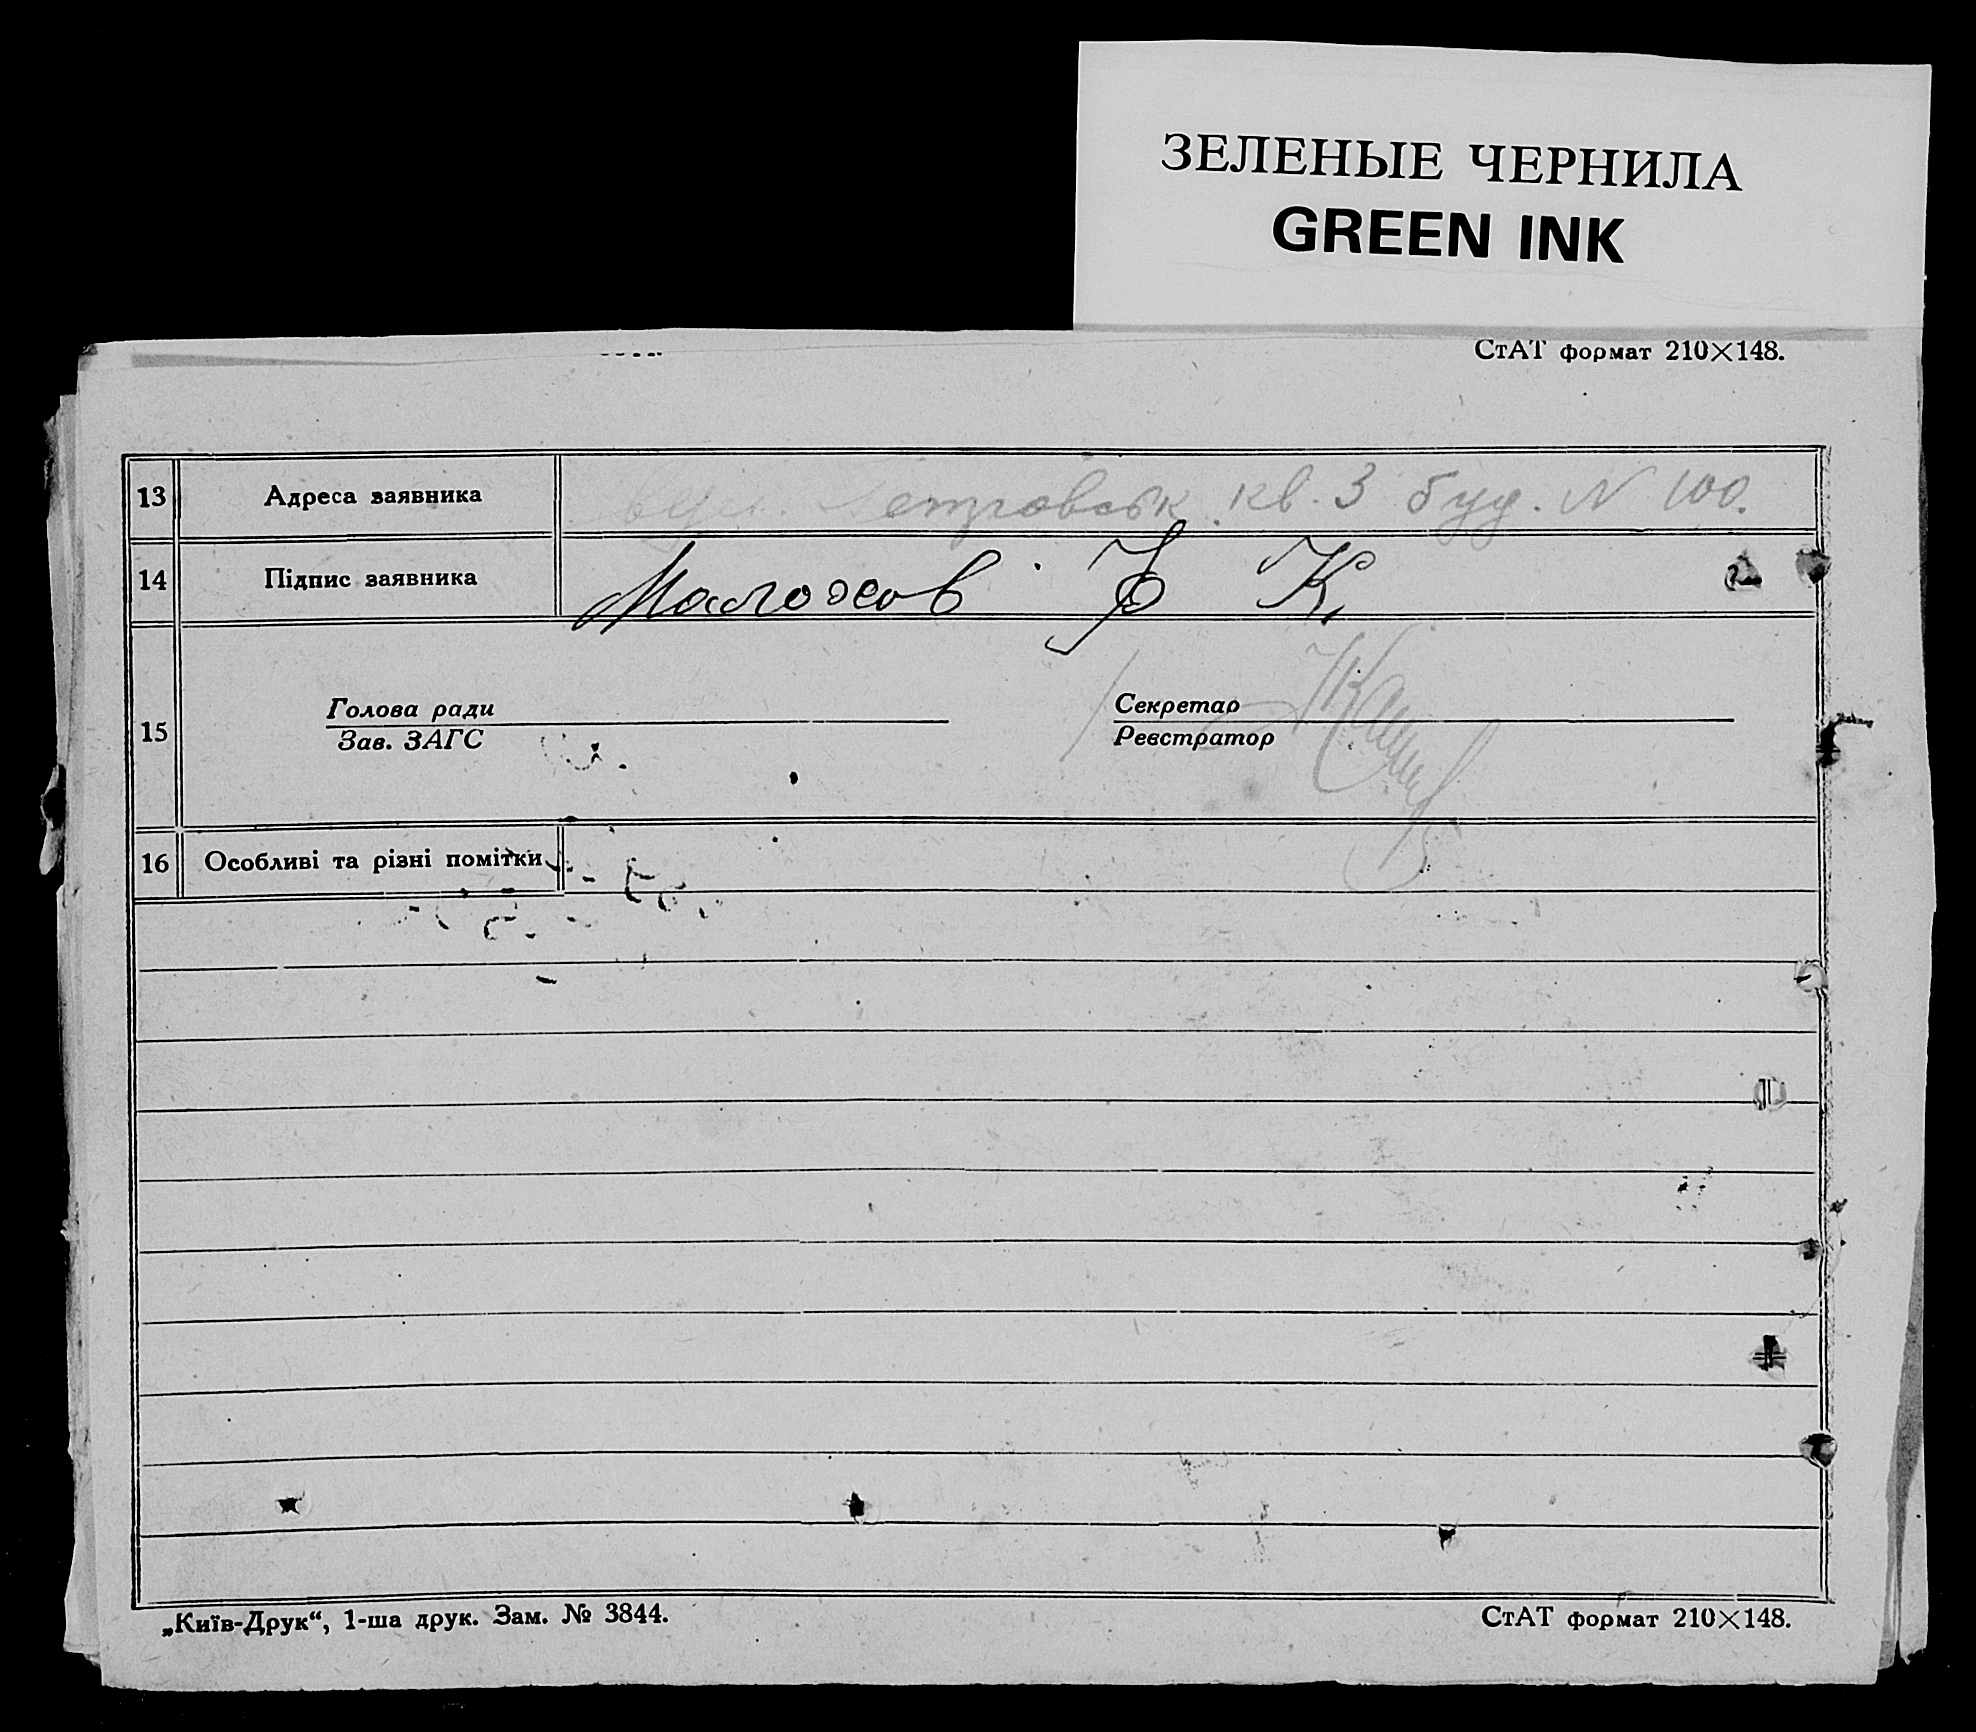 ЗЕЛЕНЫЕ ЧЕРНИЛА
GREEN INK
СтАТ формат 210×148.
13 Адреса заявника вул. Петровськ. кв. 3 буд. N 100.
14 Підпис заявника К.
15
Голова ради
Зав. ЗАГС
Секретар
Реєстратор
16 Особливі та різні помітки
„Київ-Друк“, 1-ша друк. Зам. № 3844.
СтАТ формат 210×148.